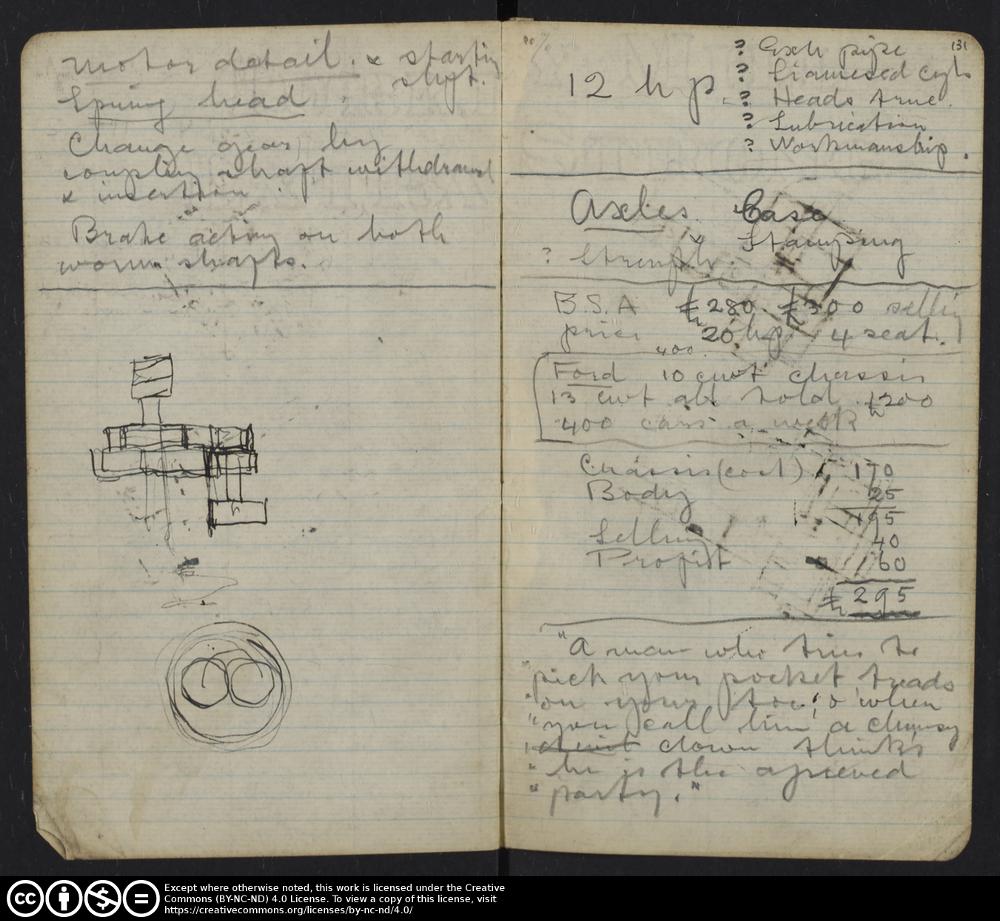 motor detail. & starting
shaft.
Spring head
Change gear by
coupling shaft withdrawal
& insertion
Brake acting on both
worm shafts.
131
12 h p.
? Exh pipe
? Siamesed cyls
? Heads true.
? Lubrication
? Workmanship.
Axles. Case
Stamping
? Strength.
B.S.A £280 £300 selling
price 20 hp 4 seat.
400
Ford 10 cwt chassis
13 cwt all told £200
400 cars a week
Chassis (cost) 170
Body 25
195
Selling 40
Profit 60
£ 295
"A man who tries to
"pick your pocket treads
"on your toe, & when
"you call him a clumsy
" clown thinks
"he is the agrieved
"party."
Except where otherwise noted, this work is licensed under the Creative
Commons (BY-NC-ND) 4.0 License. To view a copy of this license, visit
https://creativecommons.org/licenses/by-nc-nd/4.0/